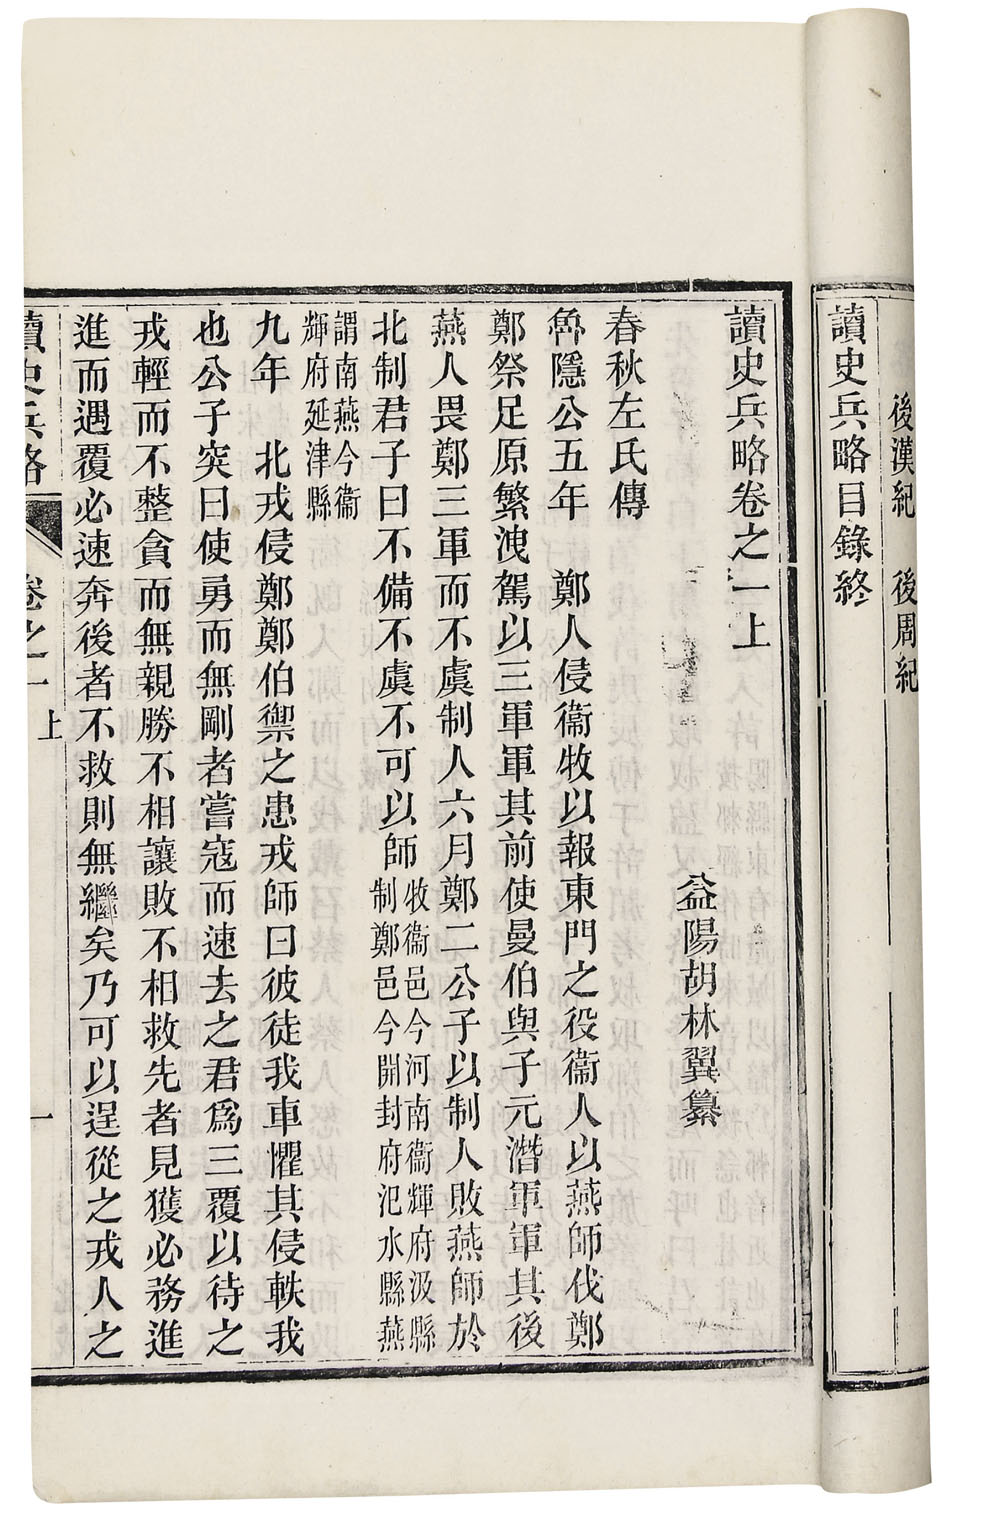 後漢紀　後周紀
讀史兵略目錄終
讀史兵略卷之一上
益陽胡林翼纂
春秋左氏傳
魯隱公五年　鄭人侵衞牧以報東門之役衞人以燕師伐鄭
鄭祭足原繁洩駕以三軍軍其前使曼伯與子元潛軍軍其後
燕人畏鄭三軍而不虞制人六月鄭二公子以制人敗燕師於
北制君子曰不備不虞不可以師
牧衞邑今河南衞輝府汲縣
制鄭邑今開封府汜水縣燕
謂南燕今衞
輝府延津縣
九年　北戎侵鄭鄭伯禦之患戎師曰彼徒我車懼其侵軼我
也公子突曰使勇而無剛者嘗寇而速去之君爲三覆以待之
戎輕而不整貪而無親勝不相讓敗不相救先者見獲必務進
進而遇覆必速奔後者不救則無繼矣乃可以逞從之戎人之
讀史兵略　卷之一上　一